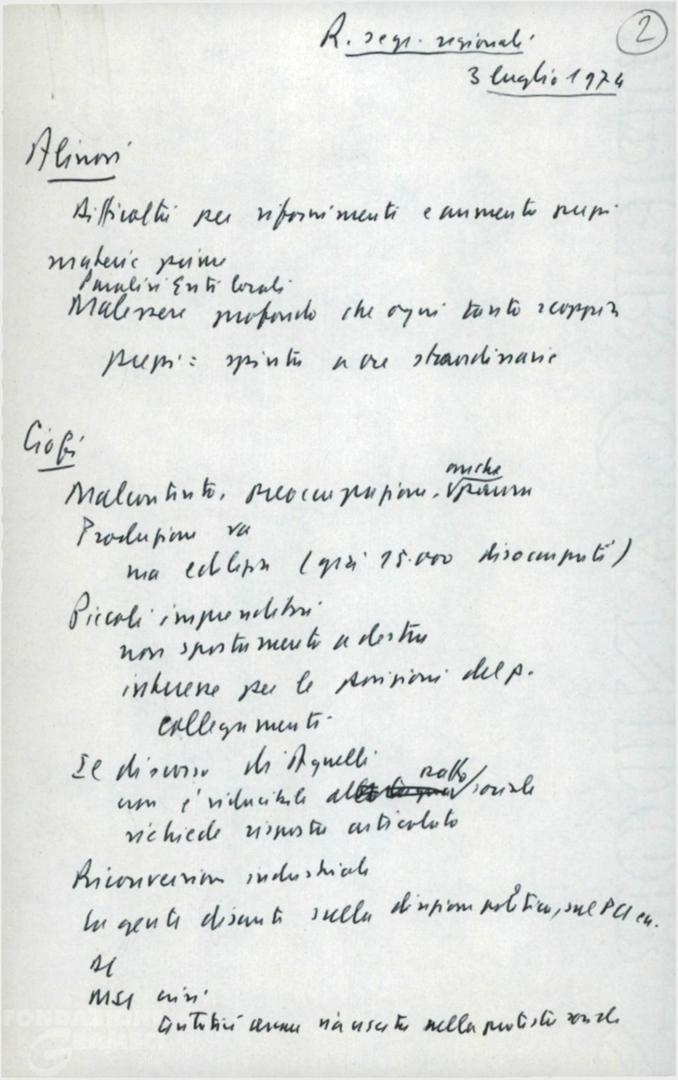 2
R. segr. regionali
3 luglio 1974
Alinovi
Difficoltà per rifornimenti e aumento prezzi
materie prime
Paralisi Enti locali
Malessere profondo che ogni tanto scoppia
prezzi: spinta a ore straordinarie
Ciofi
Malcontento, preoccupazione, anche paura
Produzione va
ma edilizia (già 15.000 disoccupati)
Piccoli imprenditori
non spostamento a destra
interesse per le posizioni del p.
collegamenti
Il discorso di Agnelli
non è riducibile al patto sociale
richiede risposta articolata
Riconversione industriale
La gente discute sulla direzione politica, sul PCI ecc.
DC
MSI crisi
tentativi di nella protesta sociale
FONDAZIONE
GRAMSCI